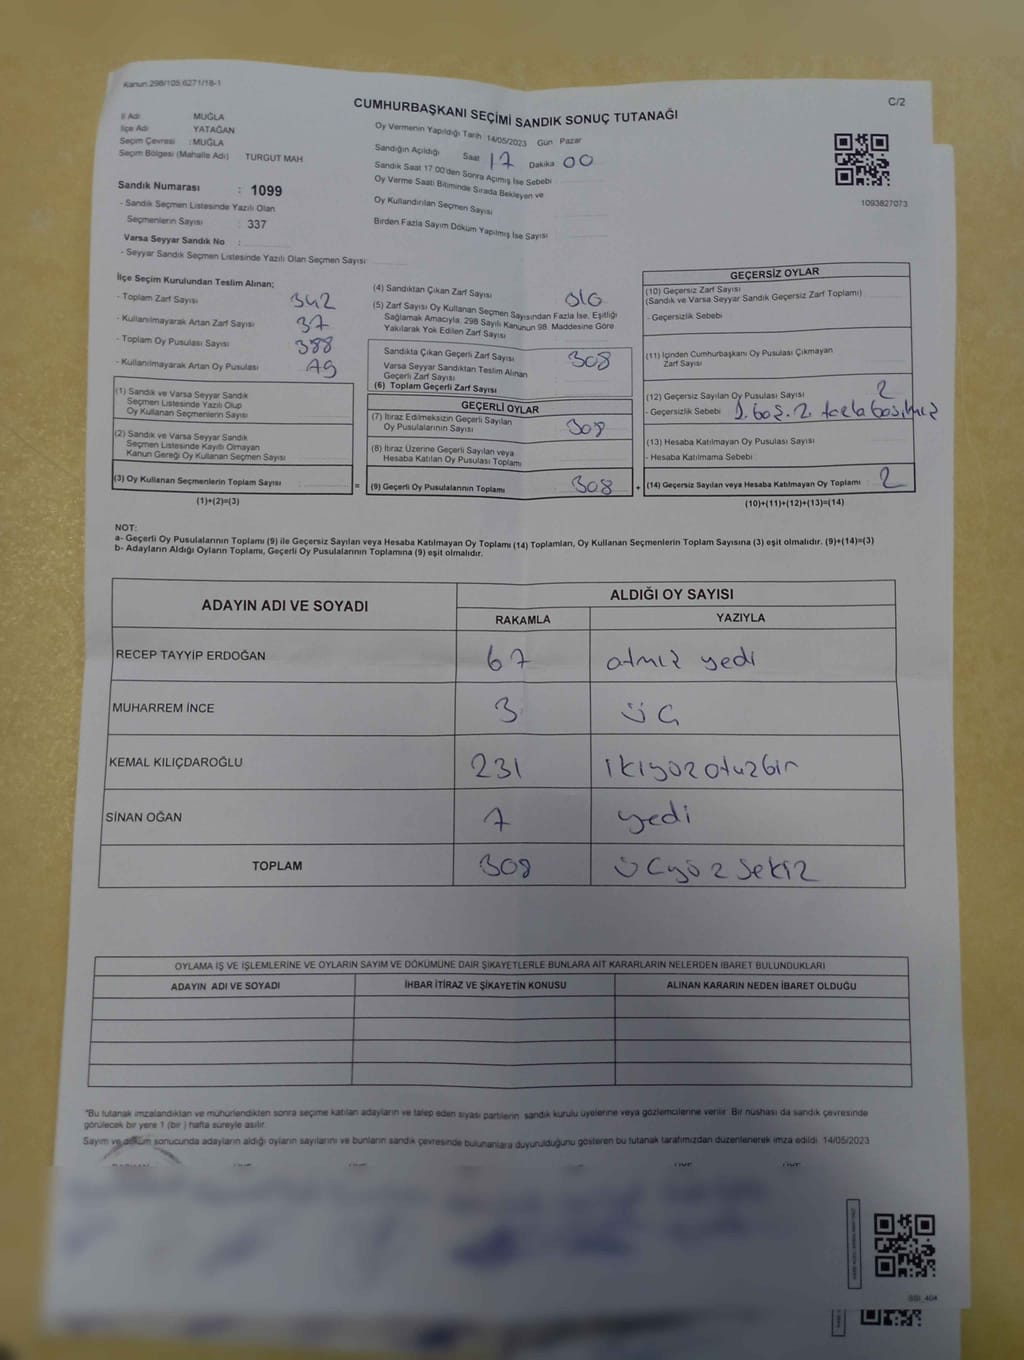 Kanun:298/105,6271/18-1
C/2
CUMHURBAŞKANI SEÇİMİ SANDIK SONUÇ TUTANAĞI
İl Adı MUĞLA
İlçe Adı YATAĞAN
Seçim Çevresi : MUĞLA
Seçim Bölgesi (Mahalle Adı) TURGUT MAH
Sandık Numarası : 1099
- Sandık Seçmen Listesinde Yazılı Olan
Seçmenlerin Sayısı : 337
Varsa Seyyar Sandık No :
- Seyyar Sandık Seçmen Listesinde Yazılı Olan Seçmen Sayısı
Oy Vermenin Yapıldığı Tarih 14/05/2023 Gün Pazar
Sandığın Açıldığı Saat 17 Dakika 00
Sandık Saat 17.00'den Sonra Açılmış İse Sebebi
Oy Verme Saati Bitiminde Sırada Bekleyen ve
Oy Kullandırılan Seçmen Sayısı
Birden Fazla Sayım Döküm Yapılmış İse Sayısı
1093827073
İlçe Seçim Kurulundan Teslim Alınan;
- Toplam Zarf Sayısı 342
- Kullanılmayarak Artan Zarf Sayısı 37
- Toplam Oy Pusulası Sayısı 388
- Kullanılmayarak Artan Oy Pusulası
(1) Sandık ve Varsa Seyyar Sandık
Seçmen Listesinde Yazılı Olup
Oy Kullanan Seçmenlerin Sayısı
(2) Sandık ve Varsa Seyyar Sandık
Seçmen Listesinde Kayıtlı Olmayan
Kanun Gereği Oy Kullanan Seçmen Sayısı
(3) Oy Kullanan Seçmenlerin Toplam Sayısı :
(1)+(2)=(3)
=
(4) Sandıktan Çıkan Zarf Sayısı 310
(5) Zarf Sayısı Oy Kullanan Seçmen Sayısından Fazla İse, Eşitliği
Sağlamak Amacıyla, 298 Sayılı Kanunun 98. Maddesine Göre
Yakılarak Yok Edilen Zarf Sayısı
Sandıkta Çıkan Geçerli Zarf Sayısı 308
Varsa Seyyar Sandıktan Teslim Alınan
Geçerli Zarf Sayısı
(6) Toplam Geçerli Zarf Sayısı
GEÇERLİ OYLAR
(7) İtiraz Edilmeksizin Geçerli Sayılan
Oy Pusulalarının Sayısı 308
(8) İtiraz Üzerine Geçerli Sayılan veya
Hesaba Katılan Oy Pusulası Toplamı
(9) Geçerli Oy Pusulalarının Toplamı 308
+
GEÇERSİZ OYLAR
(10) Geçersiz Zarf Sayısı
(Sandık ve Varsa Seyyar Sandık Geçersiz Zarf Toplamı)
- Geçersizlik Sebebi
(11) İçinden Cumhurbaşkanı Oy Pusulası Çıkmayan
Zarf Sayısı
(12) Geçersiz Sayılan Oy Pusulası Sayısı 2
- Geçersizlik Sebebi 1. boş. 2. fazla basılmız
(13) Hesaba Katılmayan Oy Pusulası Sayısı
- Hesaba Katılmama Sebebi
(14) Geçersiz Sayılan veya Hesaba Katılmayan Oy Toplamı : 2
(10)+(11)+(12)+(13)=(14)
NOT:
a- Geçerli Oy Pusulalarının Toplamı (9) ile Geçersiz Sayılan veya Hesaba Katılmayan Oy Toplamı (14) Toplamları, Oy Kullanan Seçmenlerin Toplam Sayısına (3) eşit olmalıdır. (9)+(14)=(3)
b- Adayların Aldığı Oyların Toplamı, Geçerli Oy Pusulalarının Toplamına (9) eşit olmalıdır.
ADAYIN ADI VE SOYADI ALDIĞI OY SAYISI
RAKAMLA YAZIYLA
RECEP TAYYİP ERDOĞAN 67 atmız yedi
MUHARREM İNCE 3 üç
KEMAL KILIÇDAROĞLU 231 ikiyüzotuzbir
SİNAN OĞAN 7 yedi
TOPLAM 308 üçyüz sekiz
OYLAMA İŞ VE İŞLEMLERİNE VE OYLARIN SAYIM VE DÖKÜMÜNE DAİR ŞİKAYETLERLE BUNLARA AİT KARARLARIN NELERDEN İBARET BULUNDUKLARI
ADAYIN ADI VE SOYADI İHBAR İTİRAZ VE ŞİKAYETİN KONUSU ALINAN KARARIN NEDEN İBARET OLDUĞU
"Bu tutanak imzalandıktan ve mühürlendikten sonra seçime katılan adayların ve talep eden siyasi partilerin sandık kurulu üyelerine veya gözlemcilerine verilir. Bir nüshası da sandık çevresinde
görülecek bir yere 1 (bir) hafta süreyle asılır.
Sayım ve döküm sonucunda adayların aldığı oyların sayılarını ve bunların sandık çevresinde bulunanlara duyurulduğunu gösteren bu tutanak tarafımızdan düzenlenerek imza edildi. 14/05/2023
SSI_404